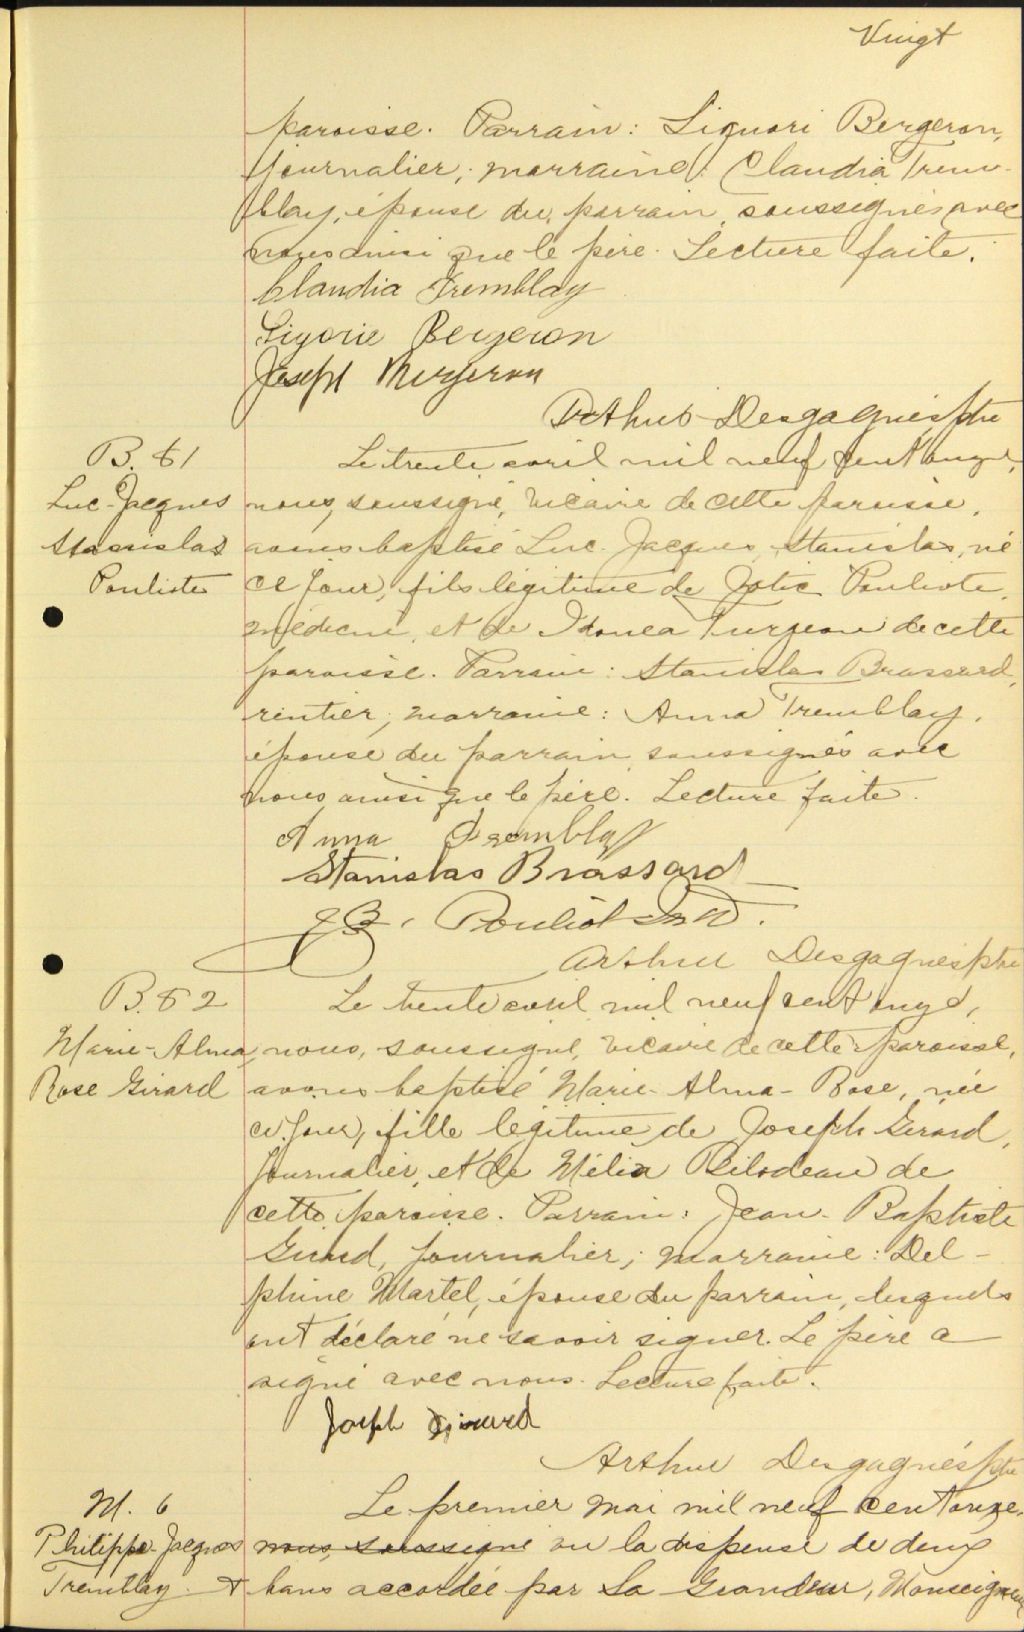 Vingt
paroisse. Parrain: Liguori Bergeron,
journalier; marraine: Claudia Trem-
blay, épouse du parrain, soussignés avec
nous ainsi que le père. Lecture faite.
Claudia Tremblay
Ligorie Bergeron
Joseph Bergeron
Arthur Desgagnés ptre
B. 61
Luc-Jacques
Stanislas
Pouliote
Le trente avril mil neuf cent onze,
nous, soussigné, vicaire de cette paroisse,
avons baptisé Luc-Jacques Stanislas, né
ce jour, fils légitime de Pouliote,
médecin, et de Idonea Turgeon de cette
paroisse. Parrain: Stanislas Brassard,
rentier; marraine: Anna Tremblay,
épouse du parrain soussignés avec
nous ainsi que le père. Lecture faite.
Anna Tremblay
Stanislas Brassard
J.B. Pouliot M.D.
Arthur Desgagnés ptre
B. 62
Marie-Alma
Rose Girard
Le trente avril mil neuf cent onze,
nous, soussigné, vicaire de cette paroisse,
avons baptisé Marie-Alma-Rose, née
ce jour, fille légitime de Joseph Girard,
journalier, et de Mélia Bilodeau de
cette paroisse. Parrain: Jean-Baptiste
Girard, journalier; marraine: Del-
phine Martel, épouse du parrain, lesquels
ont déclaré ne savoir signer. Le père a
signé avec nous. Lecture faite.
Joseph Girard
Arthur Desgagnés ptre
M. 6
Philippe-Jacques
Tremblay &
Le premier mai mil neuf cent onze,
nous, soussigné vu la dispense de deux
bans accordée par Sa Grandeur, Monseigneur